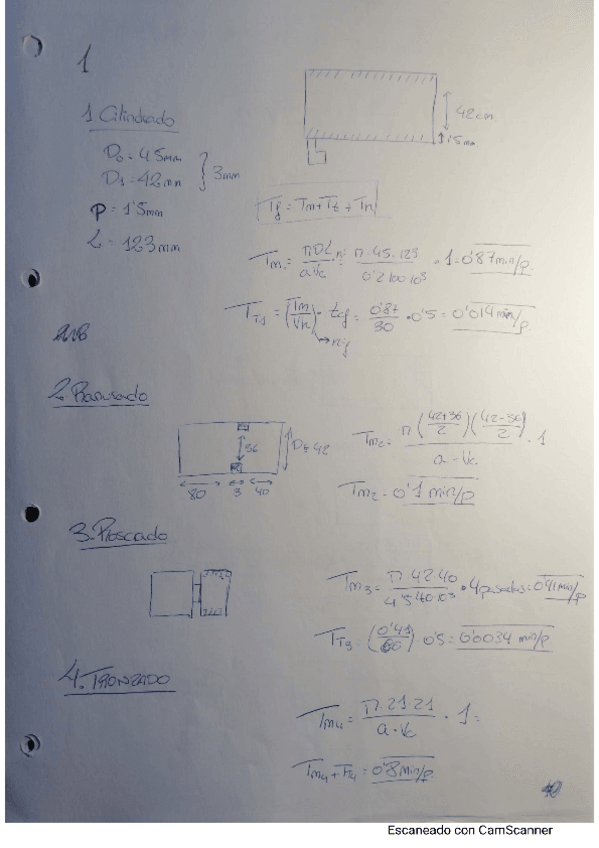 1
1 Cilindrado
D₀ = 45mm
D₁ = 42mm } 3mm
P = 1'5mm
L = 123mm
42cm
1'5mm
Tf = Tm + Tt + Tn
Tm₁ = πDL/a·Vc · nj = π·45·123/0'2·100·10³ · 1 = 0'87 min/p.
TT1 = (Tm/Vk) · tcf = 0'87/30 · 0'5 = 0'014 min/p.
2. Ranurado
36
D₁ = 42
80 3 40
Tm₂ = π(42+36/2)(42-36/2)/a·Vc · 1
Tm₂ = 0'1 min/p
3. Roscado
Tm₃ = π·42·40/4'5·40·10³ · 4 pasadas = 0'41 min/p
TT3 = (0'41/60) 0'5 = 0'0034 min/p
4. TRONZADO
Tm₄ = π·21·21/a·Vc · 1 =
Tm₄ + = 0'8 min/p
Escaneado con CamScanner